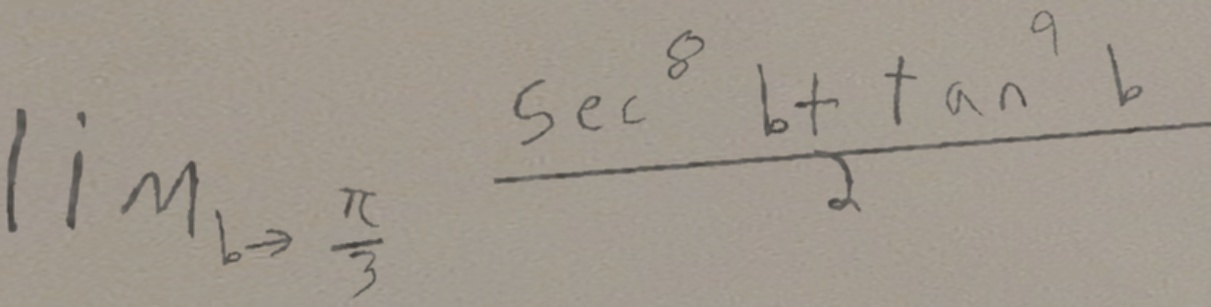 \lim_{b \to \frac{\pi}{3}} \frac{\sec^8 b + \tan^9 b}{2}